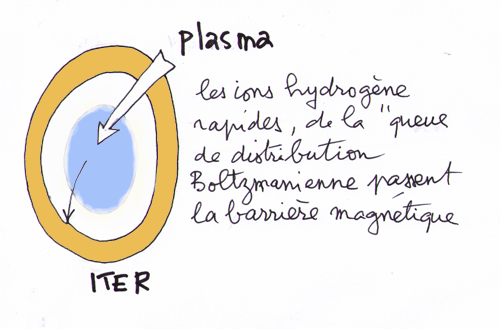 plasma
les ions hydrogène
rapides, de la "queue
de distribution
Boltzmanienne passent
la barrière magnétique
ITER